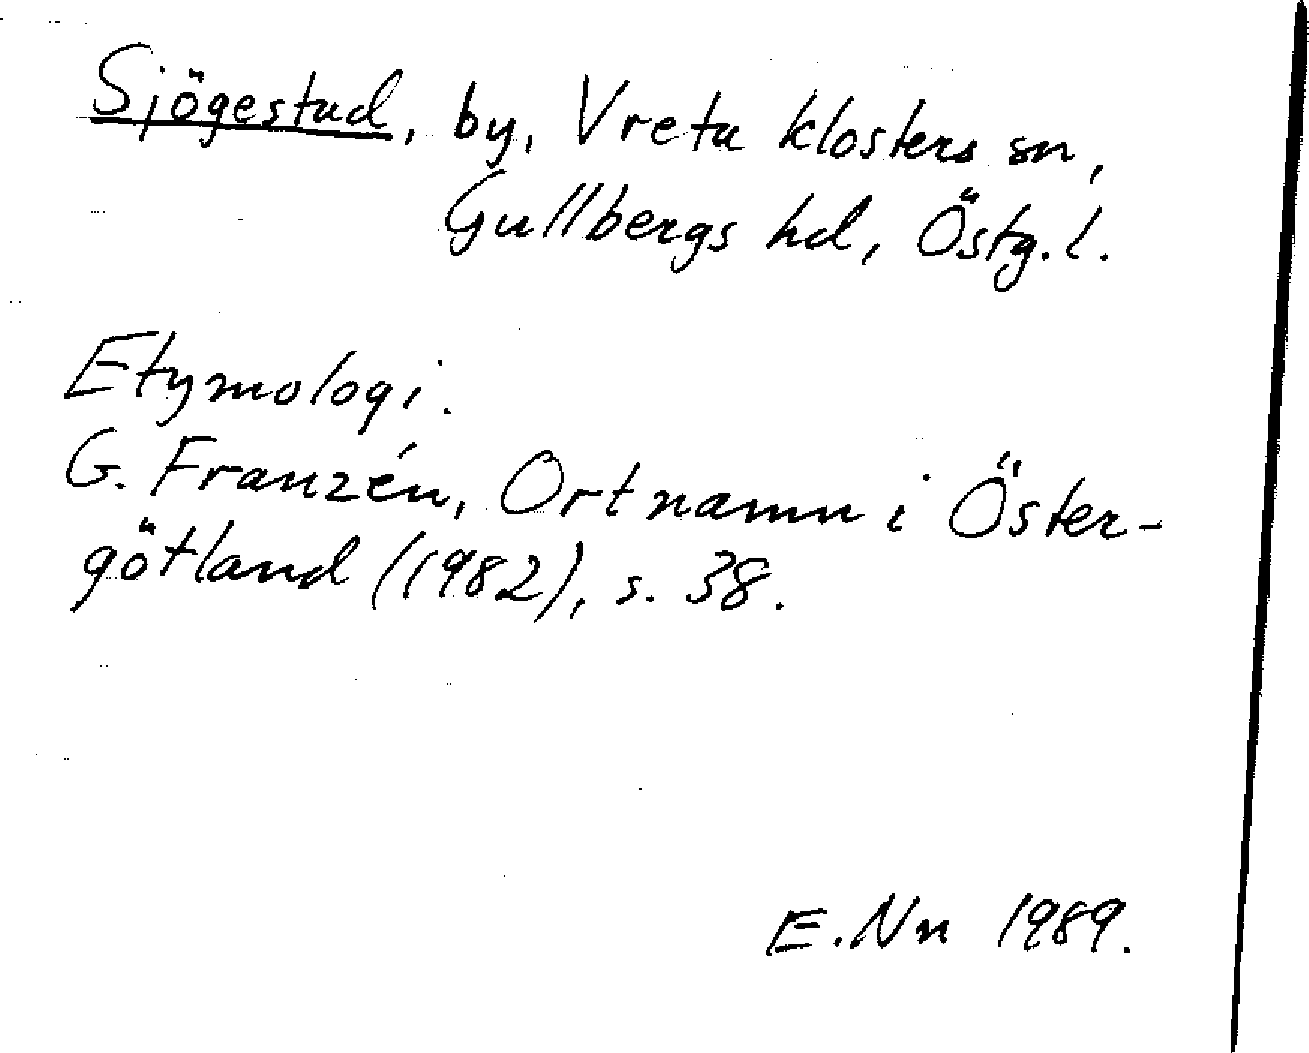 Sjögestad, by, Vreta klosters sn,
Gullbergs hd, Östg.l.
Etymologi.
G. Franzén, Ortnamn i Öster-
götland (1982), s. 38.
E.Nn 1989.